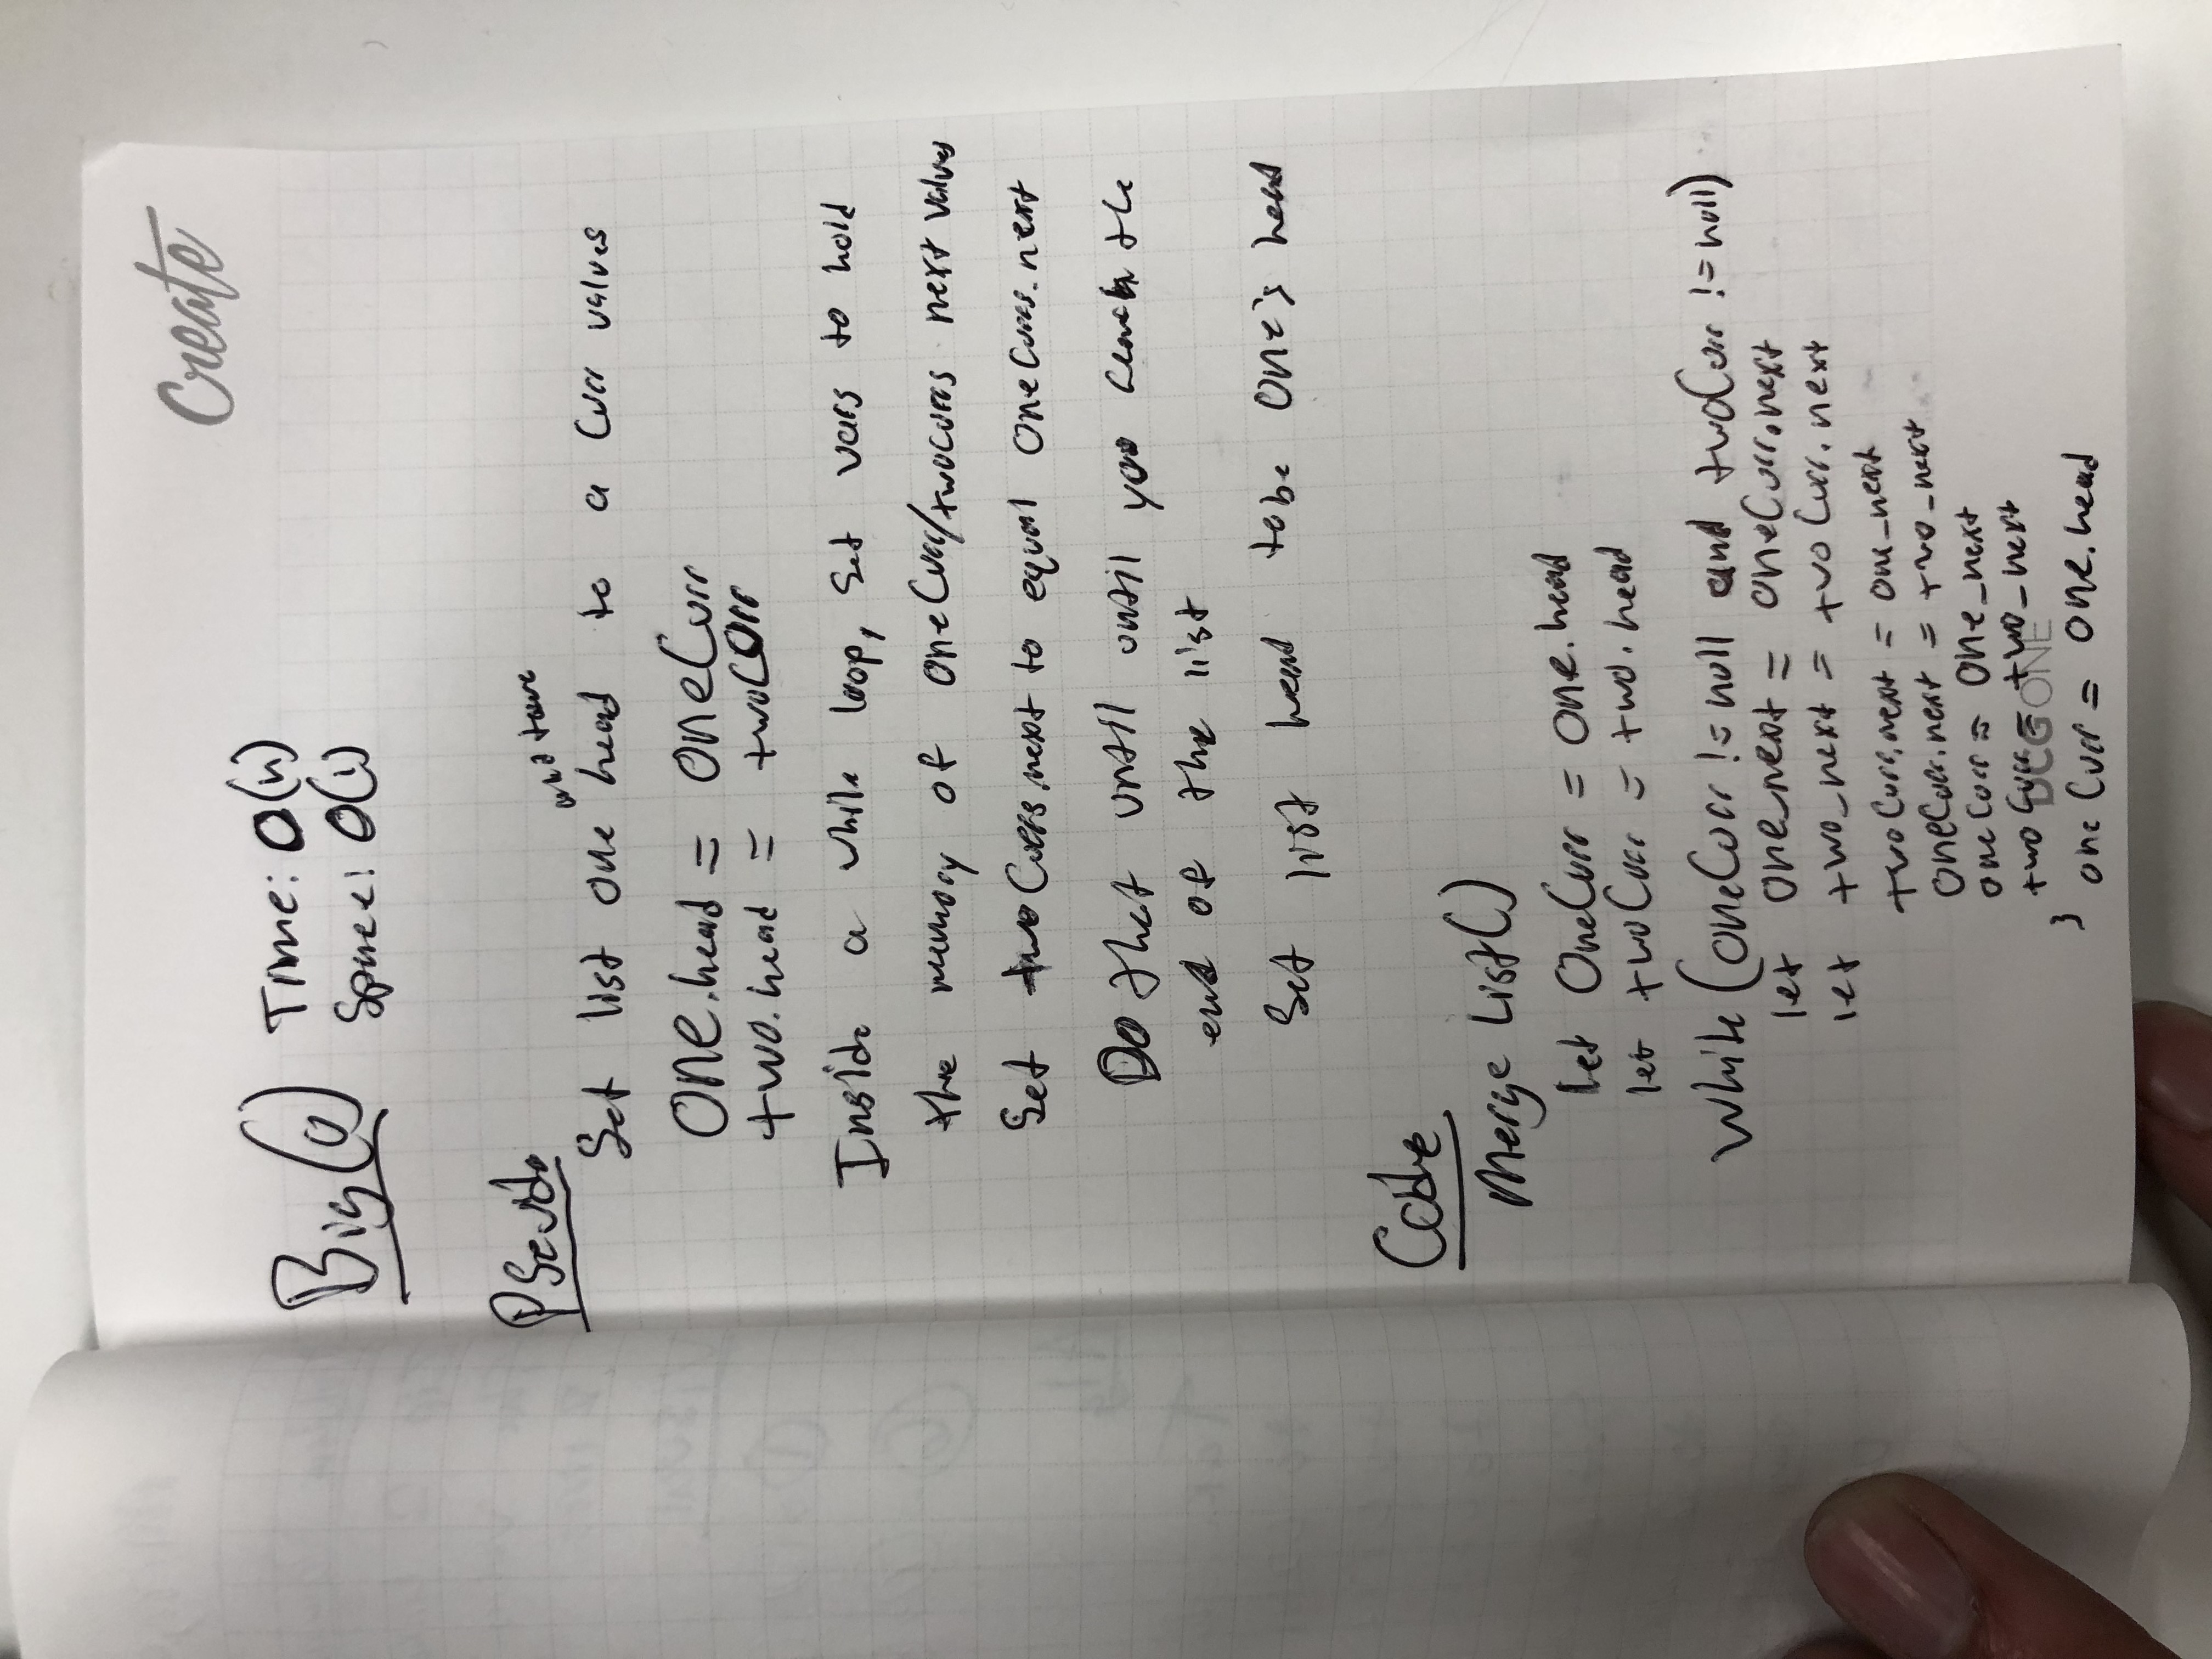 Create
Big(O) Time: O(n)
Space: O(1)
PSeudo
and two
Set list one head to a Curr values
One.head = oneCurr
two.head = twoCurr
Inside a while loop, set vars to hold
the memory of oneCurr/twoCurrs next values
Set twoCurrs.next to equal OneCurrs.next
Do that until until you reach the
end of the list
Set list head to be One's head
Code
Merge List()
let OneCurr = one.head
let twoCurr = two.head
While (oneCurr != null and twoCurr != null)
let one_next = oneCurr.next
let two_next = twoCurr.next
twoCurr.next = one_next
oneCurr.next = two_next
oneCurr = One_next
twoCurr = two_next
DCG ONE
}
oneCurr = One.head